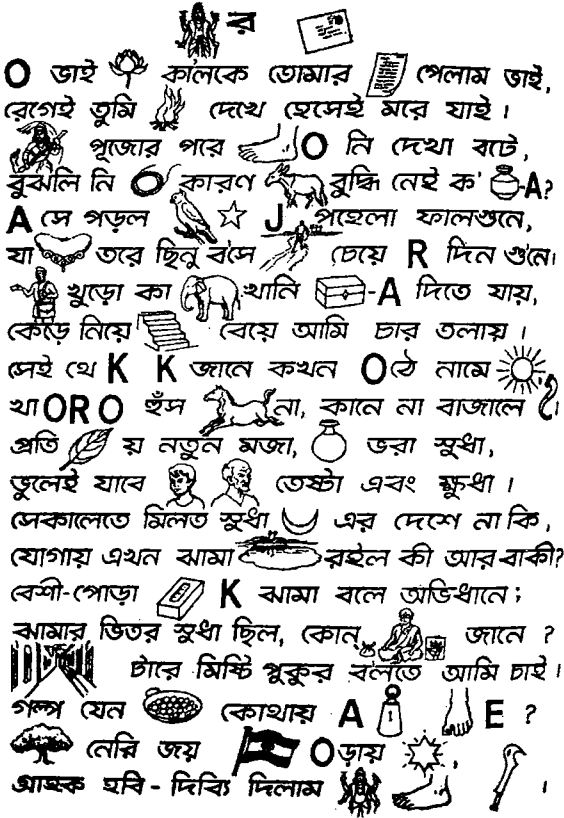 র
O ভাই কালকে তোমার পেলাম ভাই,
রেগেই তুমি দেখে হেসেই মরে যাই।
পূজোর পরে O নি দেখা বটে,
বুঝলি নি কারণ বুদ্ধি নেই ক' -A?
A সে পড়ল J পহেলা ফালগুনে,
যা তরে ছিনু ব'সে চেয়ে R দিন গুনে।
খুড়ো কা খানি -A দিতে যায়,
কেড়ে নিয়ে বেয়ে আমি চার তলায়।
সেই থে K K জানে কখন O ঠে নামে
খা ORO হুঁস না, কানে না বাজালে।
প্রতি য় নতুন মজা, ভরা সুধা,
ভুলেই যাবে তেষ্টা এবং ক্ষুধা।
সেকালেতে মিলত সুধা এর দেশে না কি,
যোগায় এখন ঝামা রইল কী আর বাকী?
বেশী-পোড়া K ঝামা বলে অভিধানে;
ঝামার ভিতর সুধা ছিল, কোন্ জানে?
টারে মিষ্টি পুকুর বলতে আমি চাই।
গল্প যেন কোথায় A E ?
নেরি জয় O ড়ায় ,
গ্রাহক হবি - দিব্যি দিলাম ।